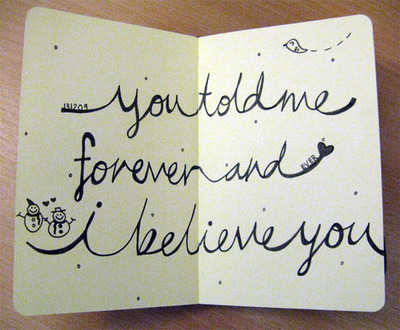 131209 you told me
forever and EVER
i believe you